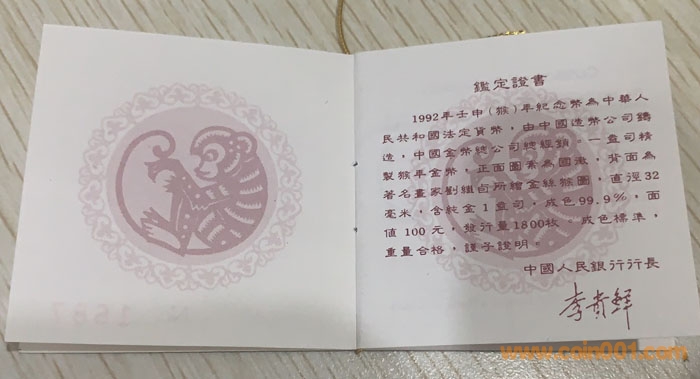 鑑定證書
1992年壬申(猴)年紀念幣為中華人
民共和國法定貨幣，由中國造幣公司鑄
造，中國金幣總公司總經銷。一盎司精
製猴年金幣，正面圖案為國徽，背面為
著名畫家劉繼卣所繪金絲猴圖，直徑32
毫米，含純金1盎司，成色99.9%，面
值100元，發行量1800枚。成色標準，
重量合格，謹予證明。
中國人民銀行行長
李貴鮮
www.coin001.com